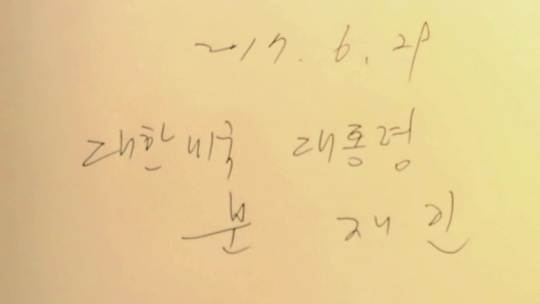 2017. 6. 29
대한미국 대통령
문 재 인